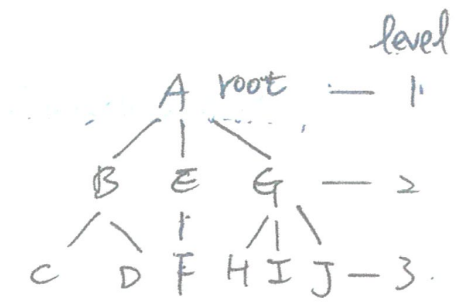 level
A root — 1
B E G — 2
C D F H I J — 3.